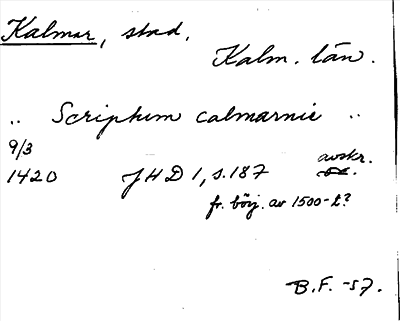 Kalmar, stad.
Kalm. län.
„ Scriptum calmarnie „
9/3
1420 JHD 1, s. 187 avskr.
fr. börj. av 1500-t?
B.F. -57.